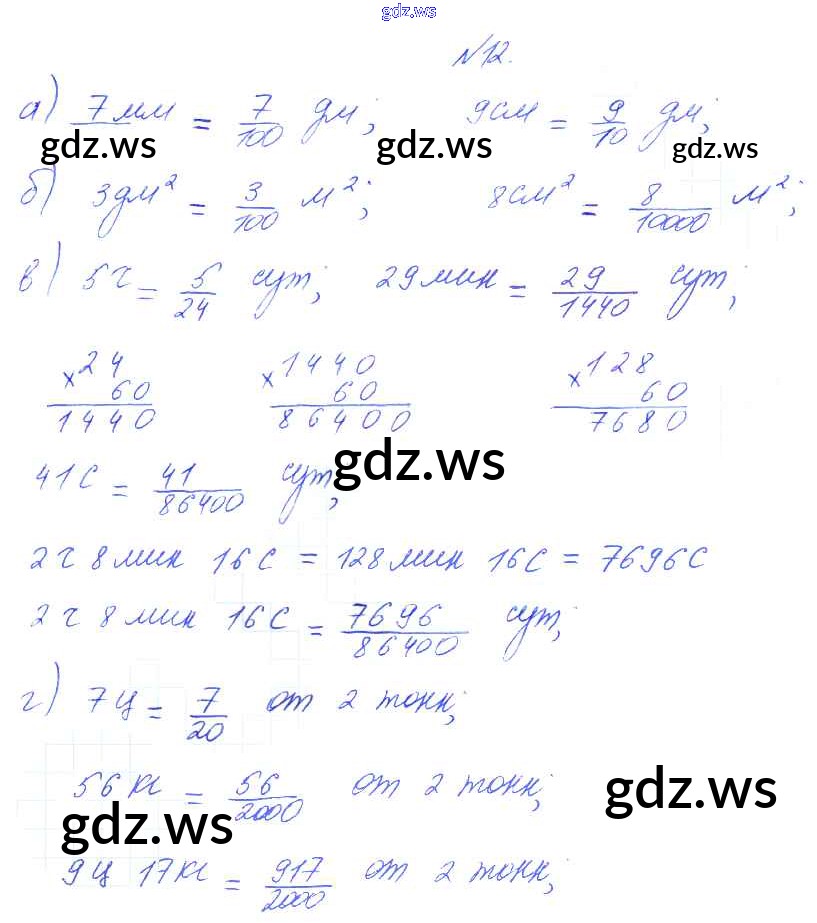 gdz.ws
№12.
а) 7мм = 7/100 дм; 9см = 9/10 дм;
gdz.ws gdz.ws gdz.ws
б) 3дм² = 3/100 м²; 8см² = 8/10000 м²;
в) 5ч = 5/24 сут; 29мин = 29/1440 сут;
×24 ×1440 ×128
60 60 60
1440 86400 7680
gdz.ws
41с = 41/86400 сут;
2ч 8мин 16с = 128мин 16с = 7696с
2ч 8мин 16с = 7696/86400 сут;
г) 7ц = 7/20 от 2 тонн;
56кг = 56/2000 от 2 тонн;
gdz.ws gdz.ws
9ц 17кг = 917/2000 от 2 тонн;